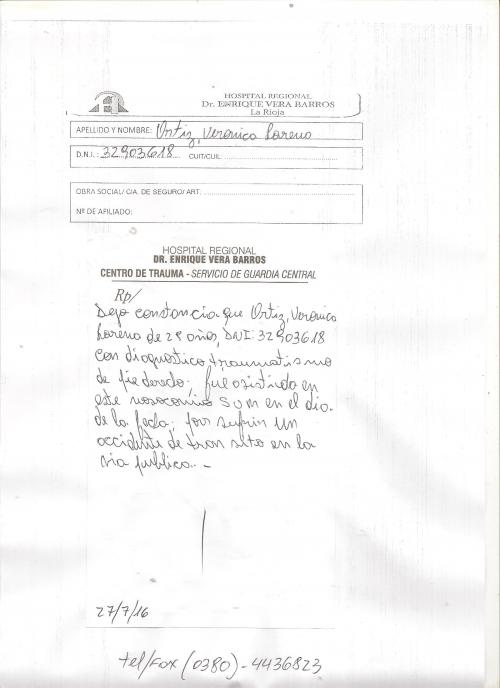 HOSPITAL REGIONAL
Dr. ENRIQUE VERA BARROS
La Rioja
APELLIDO Y NOMBRE: Ortiz, Veronica Lorena
D.N.I.: 32903618 CUIT/CUIL:
OBRA SOCIAL/ CIA. DE SEGURO/ ART:
Nº DE AFILIADO:
HOSPITAL REGIONAL
DR. ENRIQUE VERA BARROS
CENTRO DE TRAUMA - SERVICIO DE GUARDIA CENTRAL
Rp/
Dejo constancia que Ortiz, Veronica
Lorena de 29 años, DNI: 32903618
con diagnostico traumatismo
de pie derecho; fue asistida en
este nosocomio SUM en el dia
de la fecha; por sufrir un
accidente de transito en la
via publica. -
27/7/16
tel/Fax (0380) - 4436823